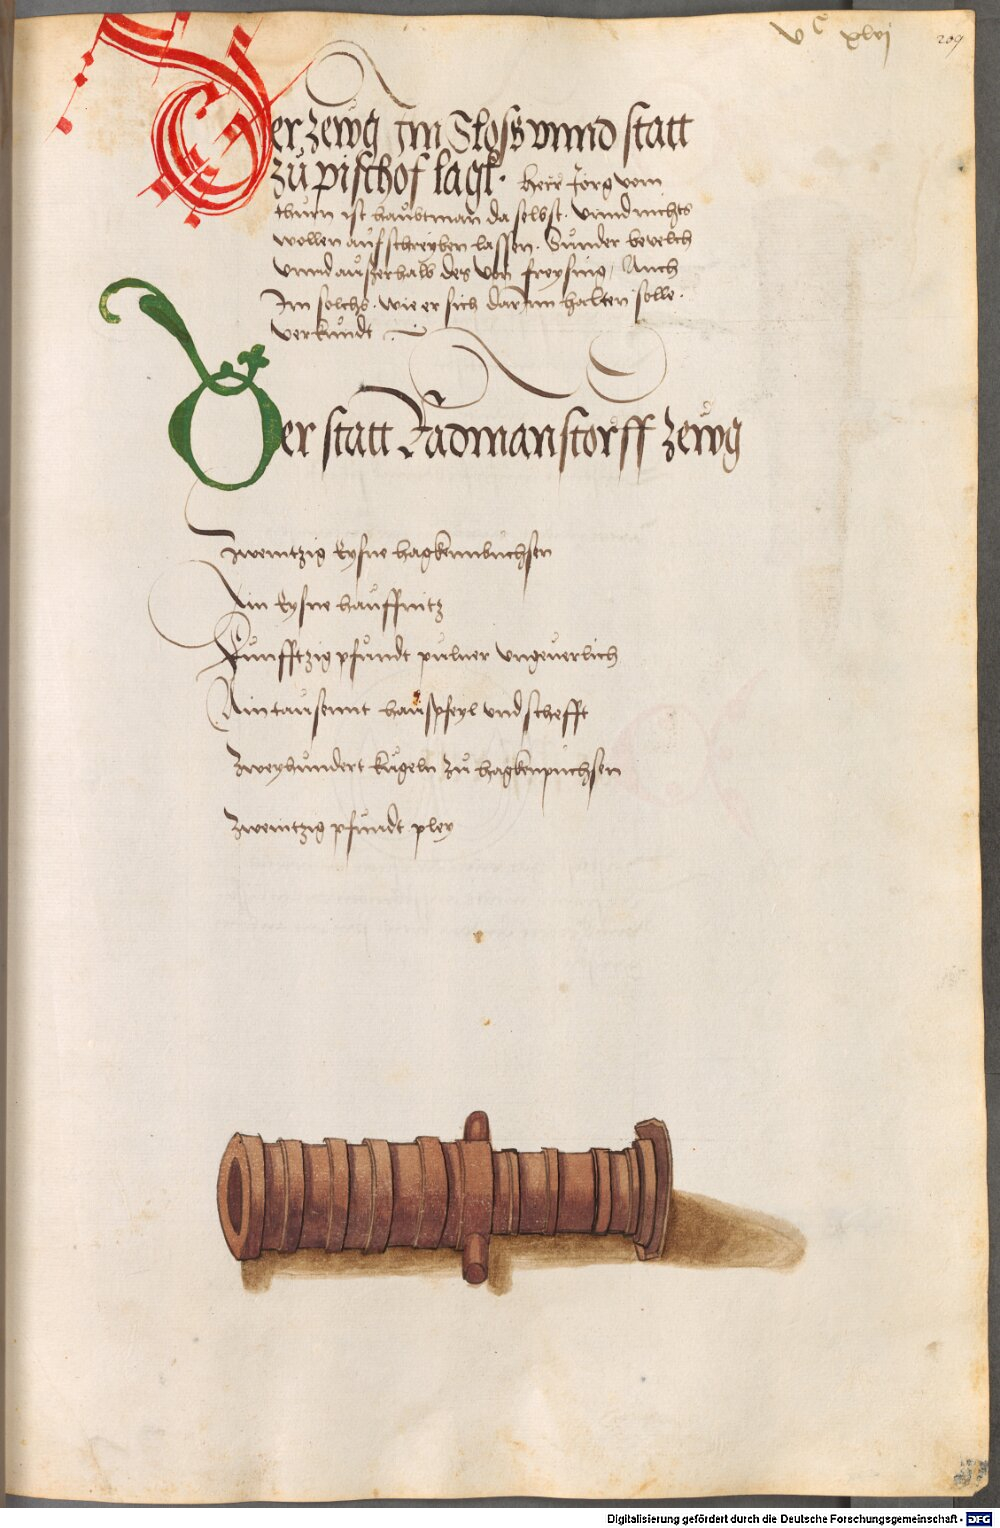 vc xlvj
209
Der zewg Im Sloss vnnd statt
zu pischof lagk. Herr Jorg vom
thurn ist haubtman da selbst. vnnd nichts
wollen aufschreyben lassen. Sunder bevelch
vnnd ausserhalb des von freysing, Auch
Im solchs. wie er sich darInn halten solle.
verkundt
Der statt Radmanstorff zewg
Zwentzig Eysne hagkennbuchsen
Ain Eysne hauffnitz
Funfftzig pfundt puluer vngeuerlich
Aintausennt hauspfeyl vnd schefft
Zweyhundert kugeln zu hagkenpuchsen
Zwentzig pfundt pley
Digitalisierung gefördert durch die Deutsche Forschungsgemeinschaft - DFG